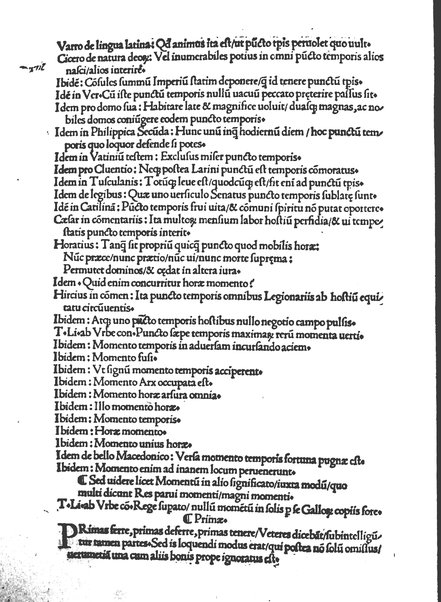 Varro de lingua latina: Qđ animus ita est/ut pūcto tp̄is peruolet quo uult.
Cicero de natura deoꝝ: Vel inumerabiles potius in omni pūcto temporis alios
nasci/alios interire.
Ibidē: Cōsules summū Imperiū statim deponere/q̄ id tenere punctū tp̄is.
Idē in Ver. Cū iste pūctū temporis nullū uacuū peccato pręterire passus sit.
Idem pro domo sua: Habitare late & magnifice uoluit/duasq; magnas, ac no-
biles domos coniūgere eodem puncto temporis.
Idem in Philippica Secūda: Hunc unū inq̄ hodiernū diem / hoc pūctū tem-
poris quo loquor defende si potes.
Idem in Vatiniū testem: Exclusus miser puncto temporis.
Idem pro Cluentio: Neq; postea Larini punctū est temporis cōmoratus.
Idem in Tusculanis: Totūq; leue est/quodcūq; est/sit eni ad punctū tp̄is.
Idem de legibus: Quæ uno uersiculo Senatus puncto temporis sublatę sunt.
Idē in Catilinā: Pūcto temporis frui uita/& cōmuni spiritu nō putat oportere.
Cæsar in cōmentariis: Ita multoꝝ mensium labor hostiū perfidia/& ui tempe-
statis puncto temporis interit.
Horatius: Tanq̄ sit propriū quicq̄ puncto quod mobilis horæ:
Nūc præce/nunc prætio/nūc ui/nunc morte suprema:
Permutet dominos/& cędat in altera iura.
Idem. Quid enim concurritur horæ momento?
Hircius in cōmen: Ita punctu temporis omnibus Legionariis ab hostiū equi-
tatu circūuentis.
Ibidem: Atq; uno pūcto temporis hostibus nullo negotio campo pulsis.
T. Li. ab Vrbe con. Puncto sæpe temporis maximaꝝ rerū momenta uerti.
Ibidem: Momento temporis in aduersam incursando aciem.
Ibidem: Momento fusi.
Ibidem: Vt signū momento temporis acciperent.
Ibidem: Momento Arx occupata est.
Ibidem: Momento horæ arsura omnia.
Ibidem: Illo momento horæ.
Ibidem: Momento temporis.
Ibidem: Horæ momento.
Ibidem: Momento unius horæ.
Idem de bello Macedonico: Versa momento temporis fortuna pugnæ est.
Ibidem: Momento enim ad inanem locum peruenerunt.
¶ Sed uidere licet Momentū in alio significato/iuxta modū/quo
multi dicunt Res parui momenti/magni momenti.
T. Li. ab Vrbe cō. Rege supato/nullū momētū in solis p se Galloꝝ copiis fore.
¶ Primæ.
PRimas ferre, primas deferre, primas tenere/Veteres dicebāt/subintelligū-
tur tamen partes. Sed is loquendi modus erat/qui postea nō solū omissus/
uerumetiā una cum aliis bonis prope ignoratus est.